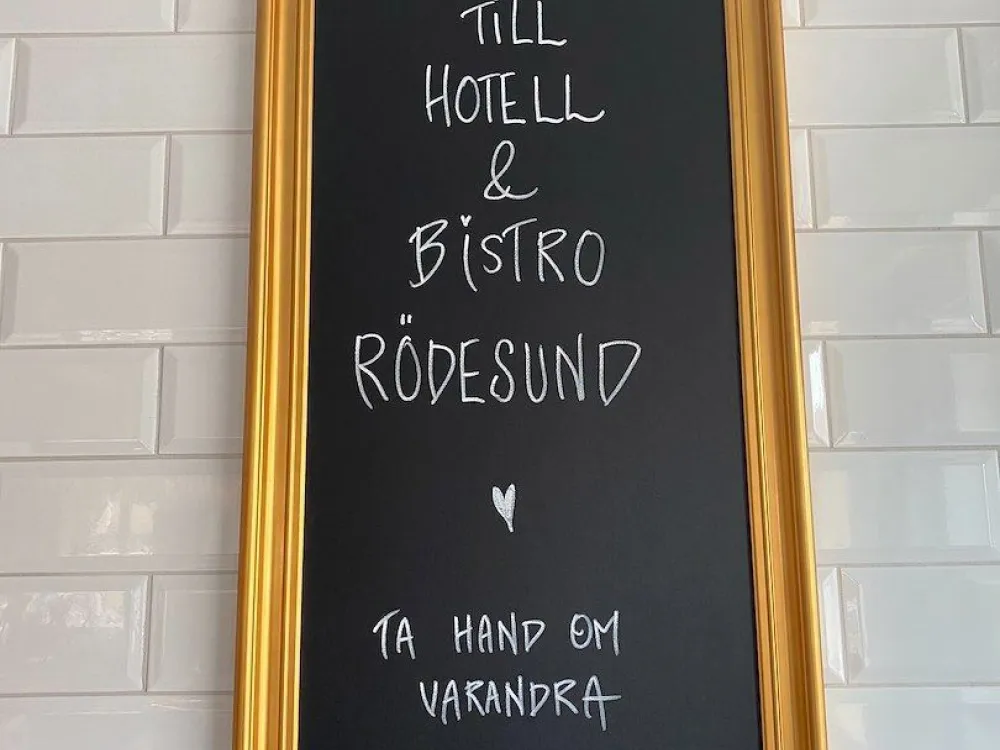 TILL
HOTELL
&
BISTRO
RÖDESUND
TA HAND OM
VARANDRA